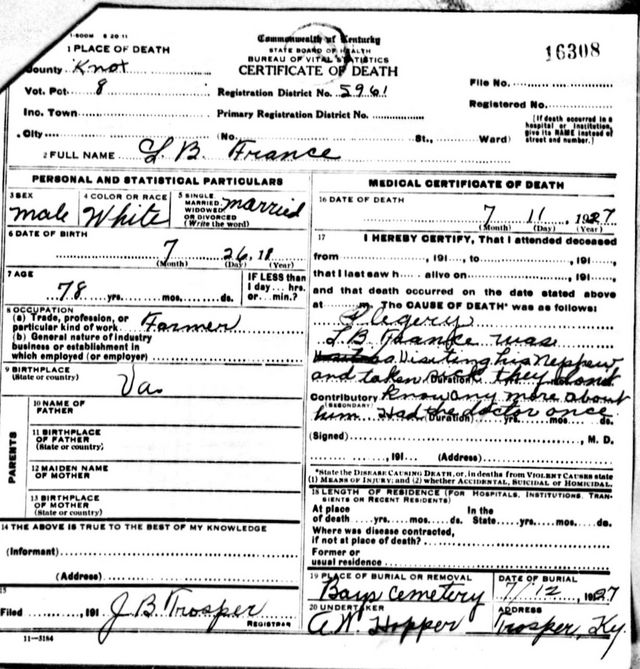 1-600M 6 20 11
Commonwealth of Kentucky
STATE BOARD OF HEALTH
BUREAU OF VITAL STATISTICS
CERTIFICATE OF DEATH
16308
1 PLACE OF DEATH
County Knox
Vot. Pct. 8
Registration District No. 5961
File No.
Inc. Town
Primary Registration District No.
Registered No.
City
(No.
St.,
Ward)
[If death occurred in a
hospital or institution,
give its NAME instead of
street and number.]
2 FULL NAME L. B. France
PERSONAL AND STATISTICAL PARTICULARS
3 SEX
male
4 COLOR OR RACE
White
5 SINGLE
MARRIED,
WIDOWED
OR DIVORCED
(Write the word)
married
6 DATE OF BIRTH
7 26, 18
(Month) (Day) (Year)
7 AGE
78 yrs. mos. ds.
IF LESS than
1 day... hrs.
or... min.?
8 OCCUPATION
(a) Trade, profession, or
particular kind of work Farmer
(b) General nature of industry
business or establishment in
which employed (or employer)
9 BIRTHPLACE
(State or country)
Va
PARENTS
10 NAME OF
FATHER
11 BIRTHPLACE
OF FATHER
(State or country)
12 MAIDEN NAME
OF MOTHER
13 BIRTHPLACE
OF MOTHER
(State or country)
14 THE ABOVE IS TRUE TO THE BEST OF MY KNOWLEDGE
(Informant)
(Address)
15
Filed , 191 J B Trosper
REGISTRAR
11-3184
MEDICAL CERTIFICATE OF DEATH
16 DATE OF DEATH
7 11, 1927
(Month) (Day) (Year)
17 I HEREBY CERTIFY, That I attended deceased
from , 191 , to , 191 ,
that I last saw h alive on , 191 ,
and that death occurred on the date stated above
at m. The CAUSE OF DEATH* was as follows:
Plegery
L B France was
a Visiting his Nephew
and taken sick they dont
(Duration)
Contributory know any more about
(SECONDARY)
him. Had the doctor once
(Duration) yrs. mos. ds.
(Signed) , M. D.
, 191 (Address)
*State the DISEASE CAUSING DEATH, or, in deaths from VIOLENT CAUSES state
(1) MEANS OF INJURY; and (2) whether ACCIDENTAL, SUICIDAL or HOMICIDAL.
18 LENGTH OF RESIDENCE (FOR HOSPITALS, INSTITUTIONS, TRAN-
SIENTS OR RECENT RESIDENTS)
At place
of death yrs. mos. ds.
In the
State yrs. mos. ds.
Where was disease contracted,
if not at place of death?
Former or
usual residence
19 PLACE OF BURIAL OR REMOVAL
Bays Cemetery
DATE OF BURIAL
7/12, 1927
20 UNDERTAKER
A. W. Hopper
ADDRESS
Trosper, Ky.